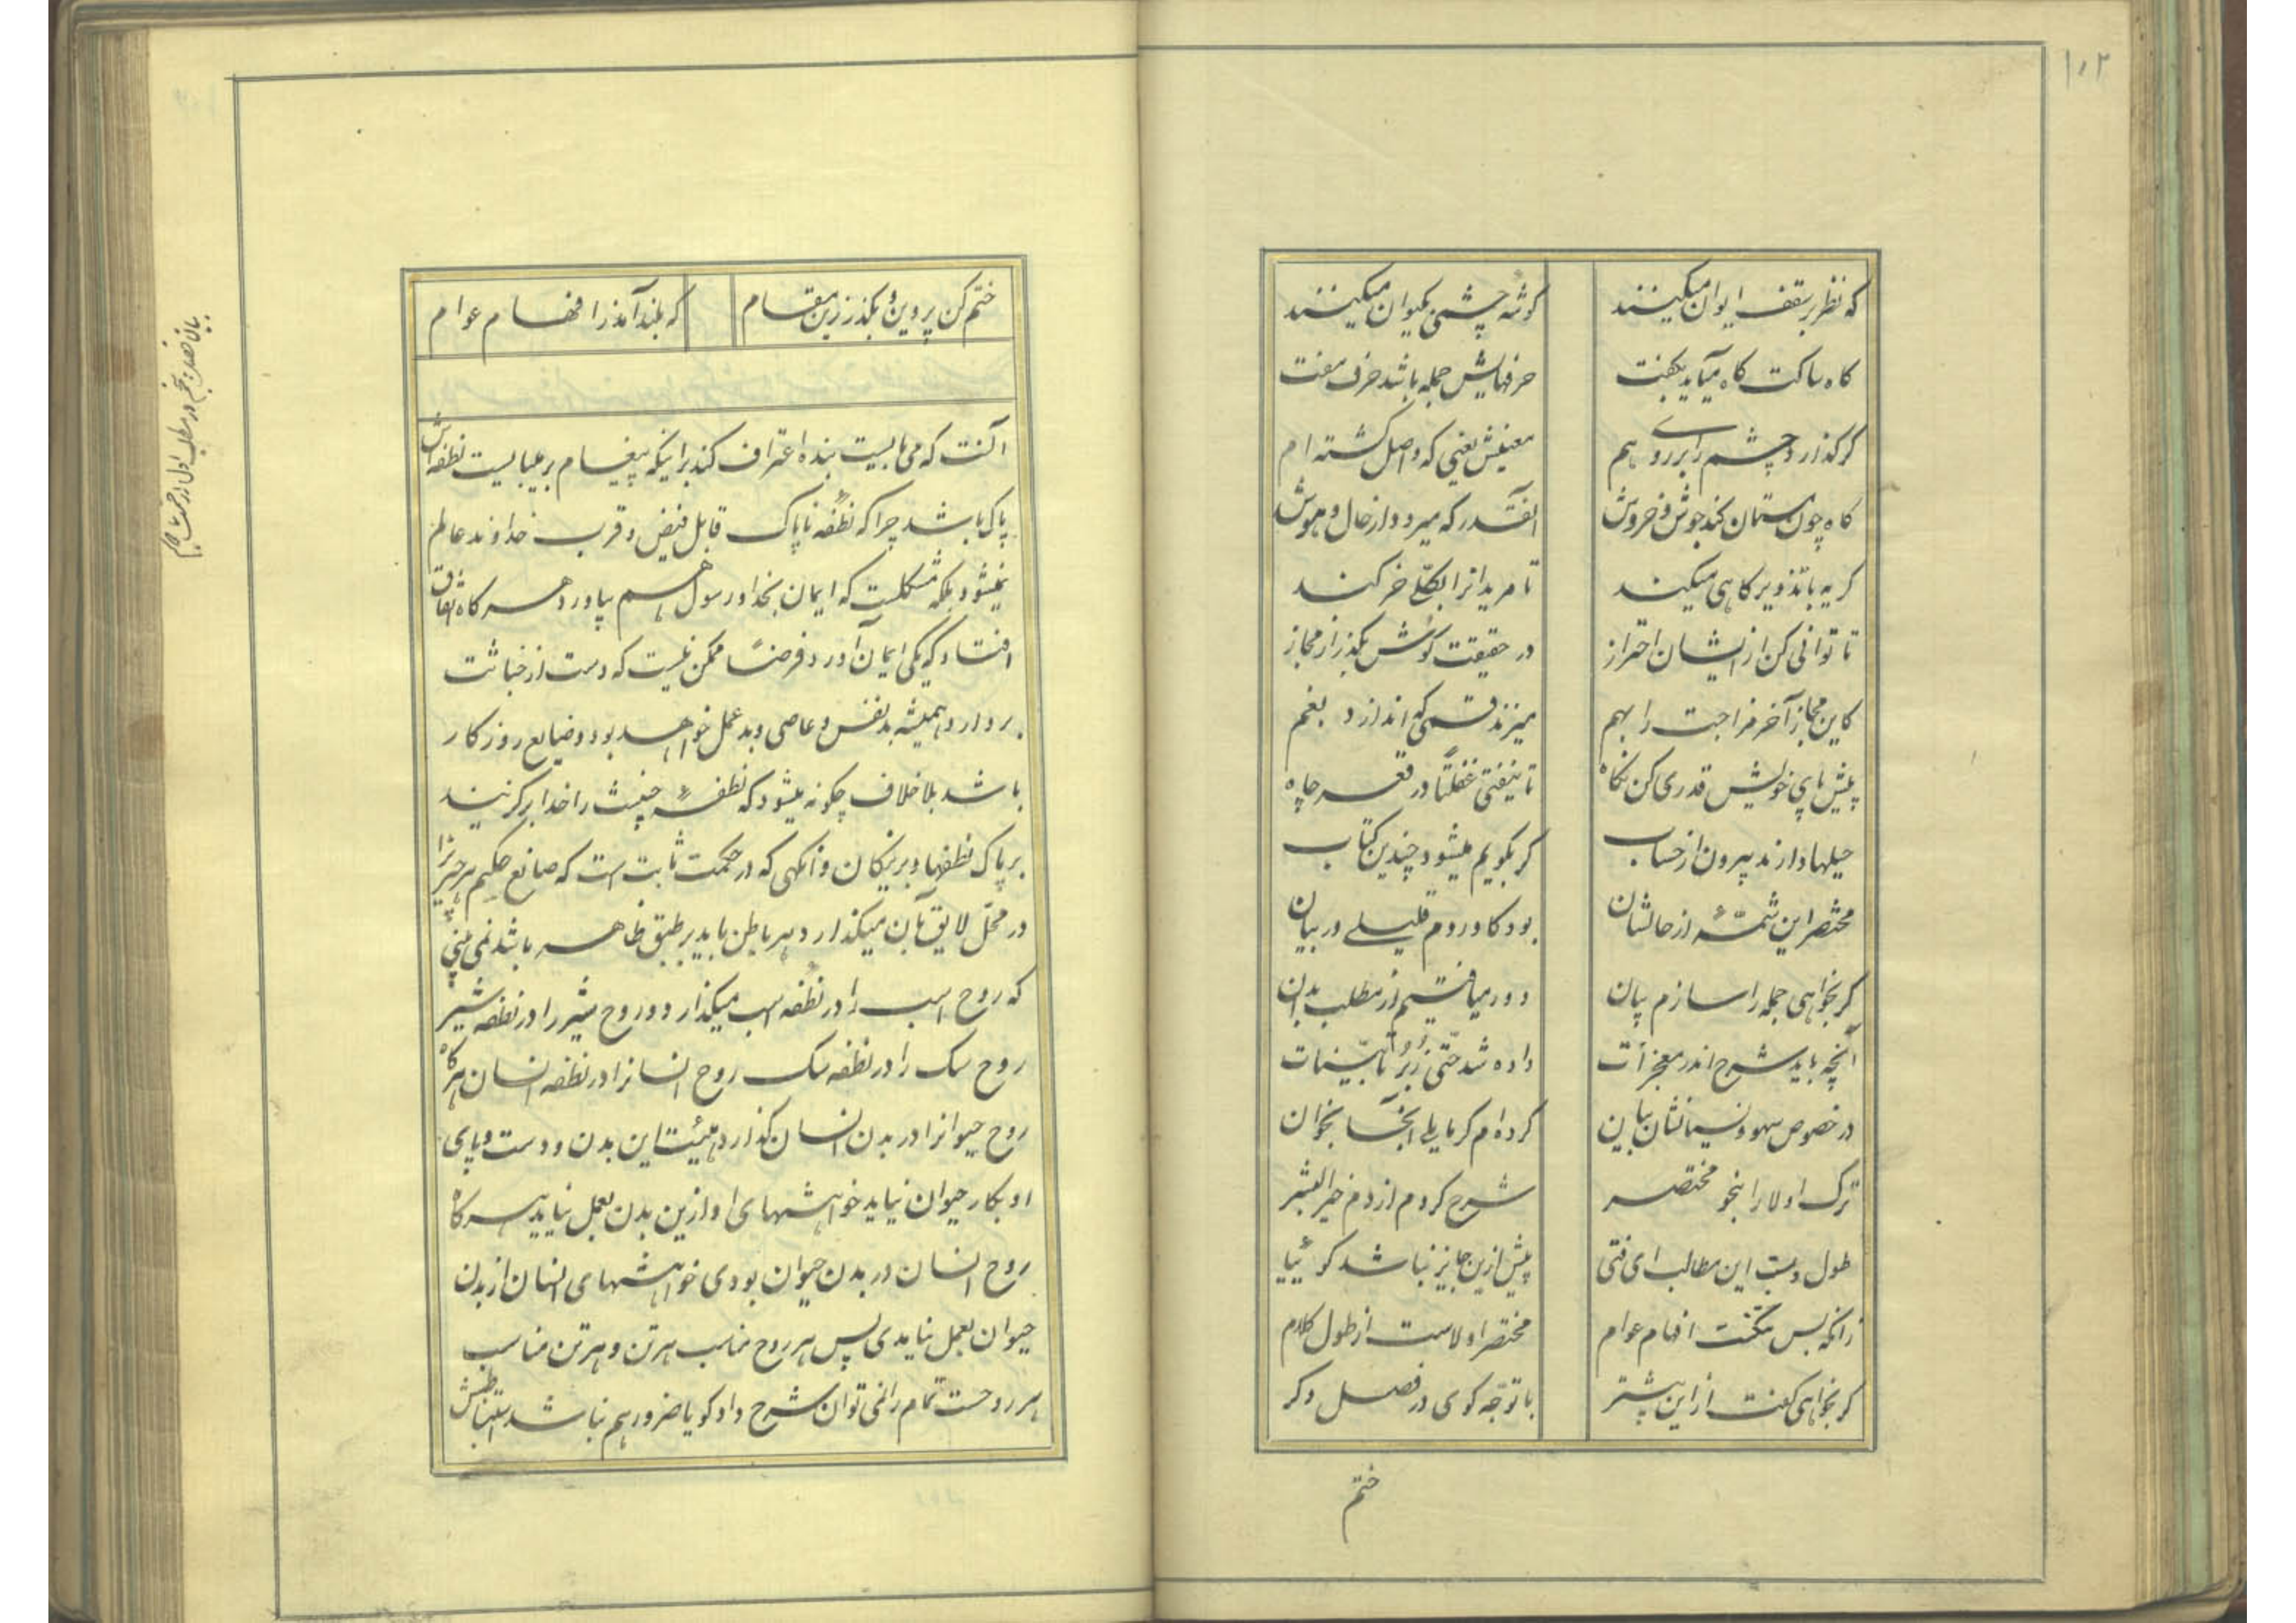 ۱۰۲
که نظر بر سقف ایوان میکینند گوشه چشمی بکیوان میکینند
گاه ساکت گاه میآید بگفت حرفهایش جمله باشد حرف مفت
گر گذارد چشم را بر روی هم معنیش یعنی که واصل گشته ام
گاه چون مستمان کند جوش و خروش آنقدر که میرود از حال و هوش
گریه با تذویر گاهی میکند تا مریدانرا بکلّی خر کند
تا توانی کن از ایشان احتراز در حقیقت کوش بگذر از مجاز
کاین مجاز آخر مزاجت را بهم میزند قسمی که اندازد بغم
پیش پای خویش قدری کن نگاه تا نیفتی غفلتاً در قعر چاه
حیلها دارند بیرون از حساب گر بگویم میشود چندین کتاب
مختصر این شمّهٔ از حالشان بود کاوردم قلیلی در بیان
گر بخواهی جمله را سازم بیان دور میافتیم از مطلب بدان
آنچه باید شرح اندر معجزات داده شد حتّی زبر تا بیّنات
در خصوص سهو و نسیانشان بیان کرده ام گر مایلی آنجا بخوان
ترک اولا را بنحو مختصر شرح کردم از دم خیر البشر
طول و بسط این مطالب ای فتی بیش ازین جایز نباشد گوئیا
زانکه بس تنگست افهام عوام مختصر اولاست از طول کلام
گر بخواهی گفت از این بیشتر با توجّه گوی در فصل دگر
ختم
ختم کن پروین و بگذر زین مقام که بلند آمد ز افهام عوام
آنست که می بایست بنده اعتراف کند براینکه پیغام بر میبایست نطفه اش
پاک باشد چرا که نطفه ناپاک قابل فیض و قرب خداوند عالم
نمیشود بلکه مشکلست که ایمان بخدا و رسول هم بیاورد هر گاه اتفاق
افتاد که یکی ایمان آورد فرضاً ممکن نیست که دست از خباثت
بردارد و همیشه بدنفس و عاصی و بد عمل خواهد بود و ضایع روزگار
باشد بلا خلاف چگونه میشود که نطفهٔ خبیث را خدا برگزیند
بر پاک نطفها و بر نیکان وانگهی که در حکمت ثابت است که صانع حکیم هر چیز را
در محلّ لایق آن میگذارد و هر باطن باید بر طبق ظاهر باشد نمی بینی
که روح اسب را در نطفه اسب میگذارد و روح شیر را در نطفه شیر
روح سگ را در نطفه سگ روح انسانرا در نطفه انسان هر گاه
روح حیوانرا در بدن انسان گذارد هیئت این بدن و دست و پای
او بکار حیوان نیاید خواهشهای او ازین بدن بعمل نیاید هر گاه
روح انسان در بدن حیوان بودی خواهشهای انسان از بدن
حیوان بعمل نیامدی پس هر روح مناسب هر تن و هر تن مناسب
هر روحست تمام را نمی توان شرح داد گویا ضرور هم نباشد
بیان فصل پنجم در مطلب اول از